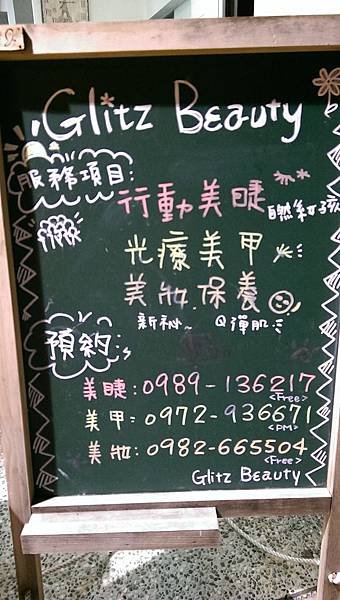 Glitz Beauty
服務項目:
行動美睫 自然紅孩
光療美甲
美妝.保養
新祕~ Q彈肌
預約
美睫:0989-136217
<Free>
美甲:0972-936671
<PM>
美妝:0982-665504
<Free>
Glitz Beauty